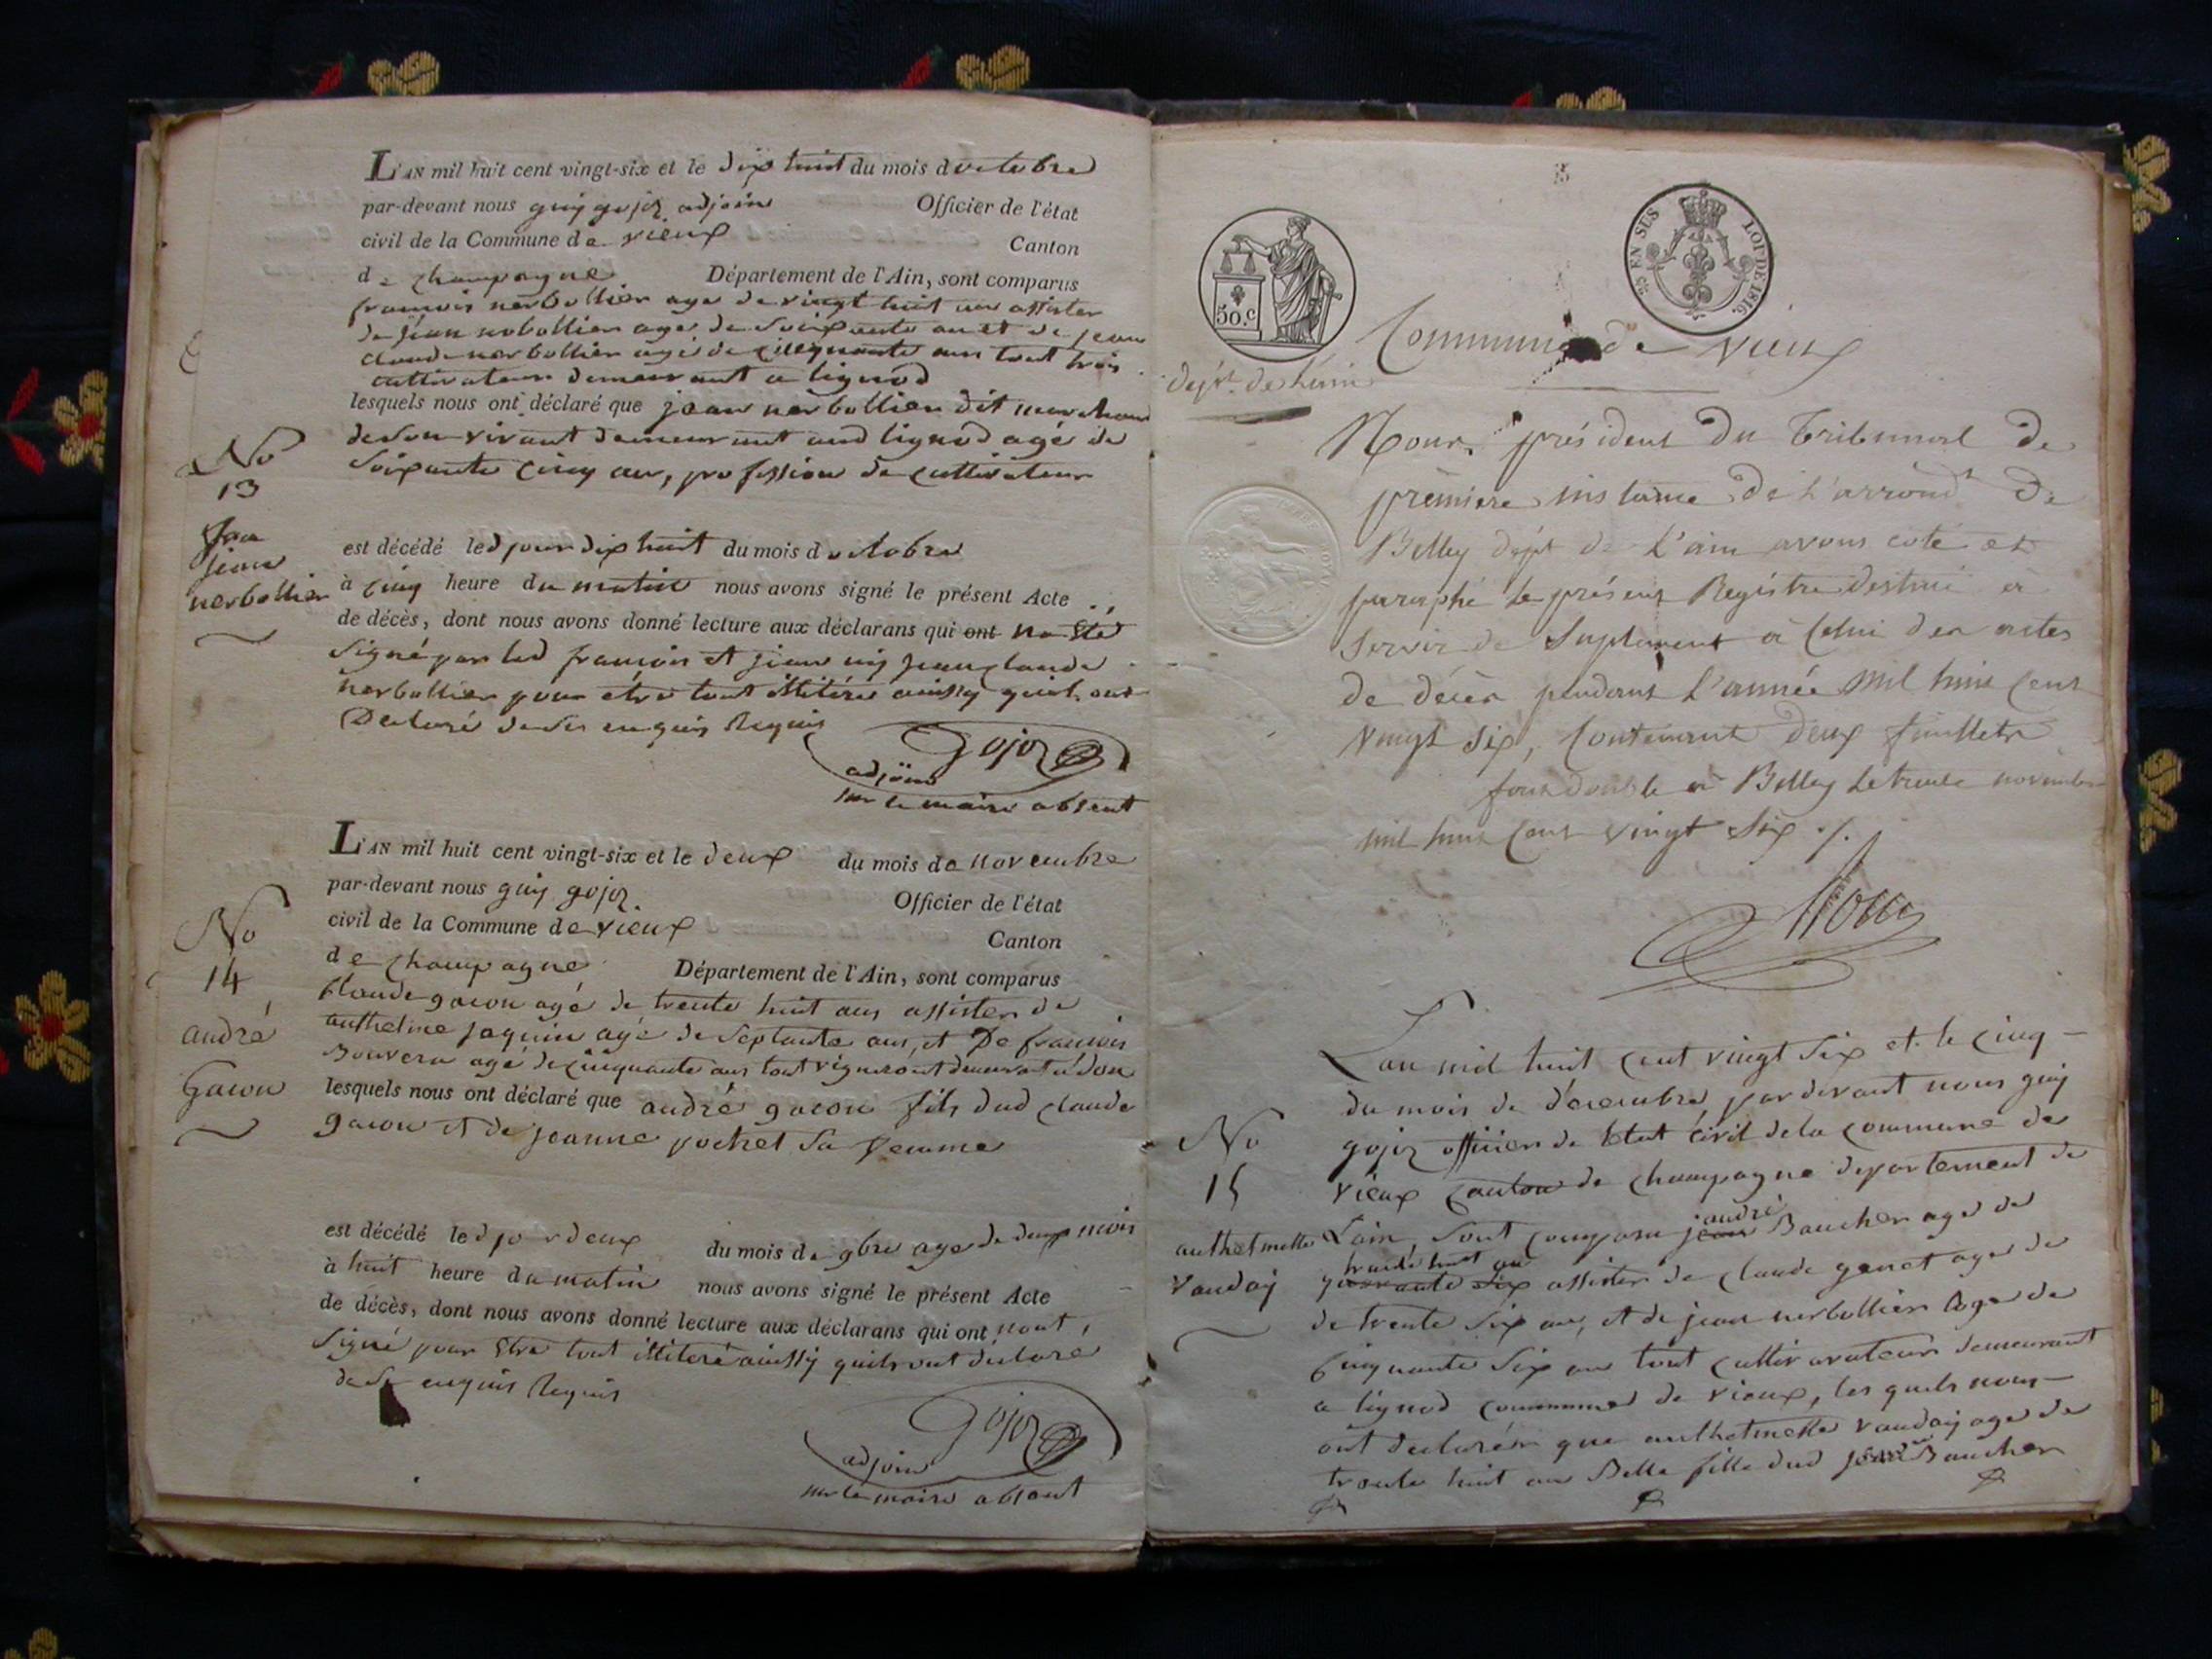 L'AN mil huit cent vingt-six et le dix huit du mois doctobre
par-devant nous guy gojoz adjoin Officier de l'état
civil de la Commune de vieux Canton
de champagne Département de l'Ain, sont comparus
francois nerbollier age de vingt huit an assister
de jean nerbollier age de soixante an et de jean
claude nerbollier agé de cinquante ans tout trois
cultivateur demeurant a lignod
lesquels nous ont déclaré que jean nerbollier dit
de son vivant demeurant aud lignod agé de
soixante cinq an, profession de cultivateur
No
13
jean
nerbollier
est décédé led jour dix huit du mois doctobre
à cinq heure du matin nous avons signé le présent Acte
de décès, dont nous avons donné lecture aux déclarans qui ont
signé par led francois et jean ny jean claude
nerbollier pour etre tout illitéré ainssy quils ont
Declaré de ce enquis Requis
Gojoz
adjoin
pr le maire absent
L'AN mil huit cent vingt-six et le deux du mois de novembre
par-devant nous guy gojoz Officier de l'état
civil de la Commune de vieux Canton
de champagne Département de l'Ain, sont comparus
Claude gacon agé de trente huit ans assister de
anthelme jaquin agé de septante ans, et De francois
Bouvera agé de cinquante ans tout vigneront demeurat a don
lesquels nous ont déclaré que andré gacon fils dud claude
gacon et de jeanne pochet sa femme
No
14
andré
Gacon
est décédé led jour deux du mois de 9bre age de deux mois
à huit heure du matin nous avons signé le présent Acte
de décès, dont nous avons donné lecture aux déclarans qui ont nont
signé pour etre tout illiteré ainssy quils ont declare
de ce enquis Requis
Gojoz
adjoin
pr le maire absent
50.c
25 EN SUS LOI DE 1816.
Commune de Vieux
Nous président du Tribunal de
première instance de L'arrondt de
Belley dépt de L'ain avons coté et
paraphé le présent Registre destiné à
servir de Suplement à Celui des actes
de décès pendant L'année mil huit Cent
vingt six, Contenant deux feuillets
fait double à Belley le trente novembre
mil huit Cent vingt six ./.
L'an mil huit cent vingt six et le cinq
du mois de décembre par devant nous guy
gojoz officier de letat civil dela commune de
vieux canton de champagne departement de
L'ain, sont comparu jean andré Baucher age de
quarante six trante huit an assister de claude genet age de
de trente six an, et de jean nerbollier Age de
cinquante six an tout cultivavateur demeurant
a lignod commune de vieux, les quels nous
ont declarér que anthelmette vauday age de
trante huit an Belle fille dud Baucher
No
15
anthelmette
vauday